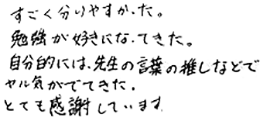 すごく分りやすかった。
勉強が好きになってきた。
自分的には、先生の言葉の推しなどで
ヤル気がでてきた。
とても感謝しています